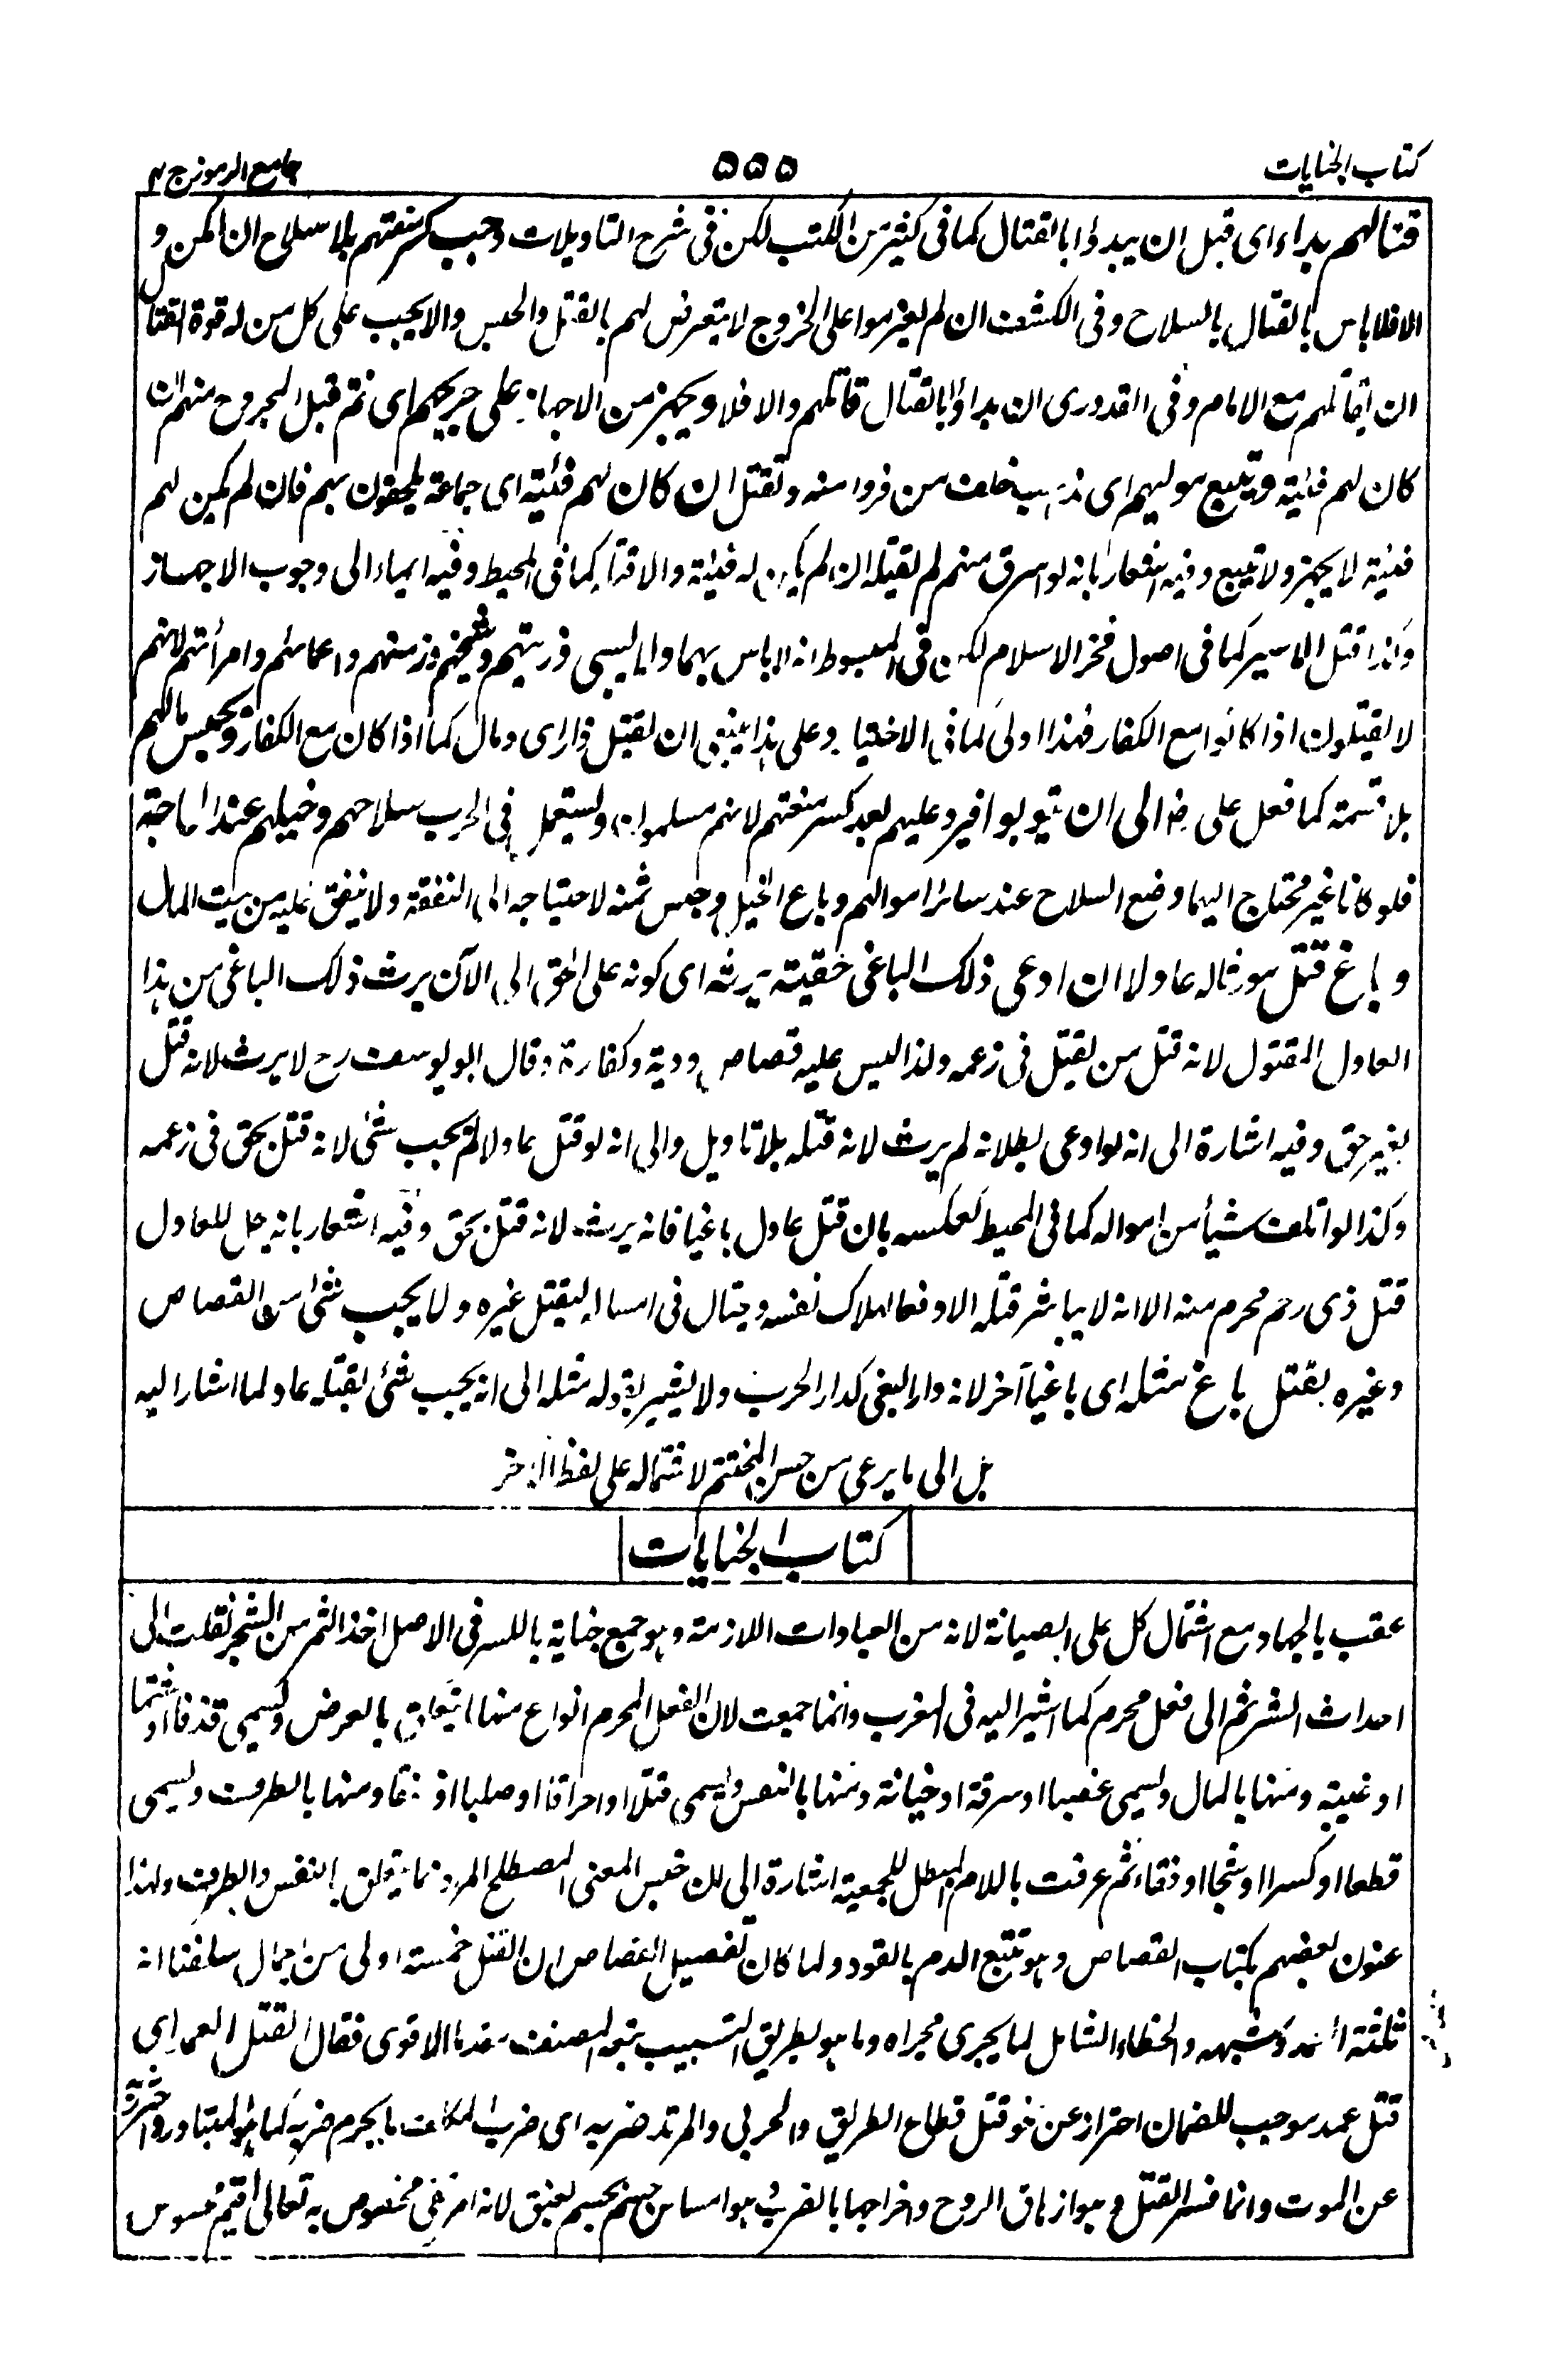 كتاب الجنايات
٥٥٥
جامع الرموز ج ٢
قتالهم بداء اى قبل ان يبدوا بالقتال كما فى كثير من الكتب لكن فى شرح التاويلات وجب كسر منعتهم بلا سلاح ان امكن و
الا فلا باس بالقتال بالسلاح وفى الكشف ان لم يعزموا على الخروج لا يتعرض لهم بالقتل والحبس والا يجب على كل من له قوة القتال
ان يقاتلهم مع الامام وفى القدورى ان بداؤا بالقتال قاتلهم والا فلا ويجهز من الاجهاز على جريحهم اى تم قتل المجروح منهم ان
كان لهم فئية ويتبع موليهم اى ذهب خلف من فروا منه وتقتل ان كان لهم فئية اى جماعة يلحقون بهم فان لم يكن لهم
فئية لا يجهز ولا يتبع وفيه اشعار بانه لو اسرق منهم لم يقتله ان لم يكن له فئية والا قتله كما فى المحيط وفيه ايماء الى وجوب الاجهاز
وكذا قتل الاسير كما فى اصول فخر الاسلام لكن فى المبسوط انه لا باس بهما ولا يسبى ذريتهم وشيخهم وزمنهم واعمائهم وامرأتهم لانهم
لا يقتلون اذا كانوا مع الكفار فهذا اولى كما فى الاختيار وعلى هذا ينبغى ان يقتل ذا راى ومال كما اذا كان مع الكفار ويحبس مالهم
بلا قسمة كما فعل على رض الى ان يتوبوا فيرد عليهم بعد كسر منعتهم لانهم مسلمون ويستعمل فى الحرب سلاحهم وخيلهم عند الحاجة
فلو كانا غير محتاج اليهما وضع السلاح عند سائر اموالهم وباع الخيل وحبس ثمنه لاحتياجه الى النفقة ولا ينفق عليه من بيت المال
وباغ قتل مورثا له عادلا ان ادعى ذلك الباغى حقيته يرثه اى كونه على الحق الى الآن يرث ذلك الباغى من هذا
العادل المقتول لانه قتل من يقتل فى زعمه ولذا ليس عليه قصاص ودية وكفارة وقال ابو يوسف رح لا يرث لانه قتل
بغير حق وفيه اشارة الى انه لو ادعى بطلانه لم يرث لانه قتله بلا تاويل والى انه لو قتل عادلا لم يجب شئ لانه قتل بحق فى زعمه
وكذا لو اتلف شيأ من امواله كما فى المحيط كعكسه بان قتل عادل باغيا فانه يرث لانه قتل بحق وفيه اشعار بانه حل للعادل
قتل ذى رحم محرم منه الا انه لا يباشر قتله الا دفعا لهلاك نفسه ويحتال فى امساكه ليقتل غيره ولا يجب شئ من القصاص
وغيره بقتل باغ مثله اى باغيا آخر لانه دار البغى كدار الحرب ولا يشير بقوله مثله الى انه يجب شئ بقتله عادلا لما اشار اليه
بل الى ما يرعى من حسن المختتم لاشتماله على لفظ الآخر
كتاب الجنايات
عقب بالجهاد مع اشتمال كل على الصيانة لانه من العبادات اللازمة وهو جمع جناية بالكسر فى الاصل اخذ الثمر من الشجر نقلت الى
احداث الشر ثم الى فعل محرم كما اشير اليه فى المغرب وانما جمعت لان الفعل المحرم انواع منها ما يتعلق بالعرض ويسمى قذفا او شتما
او غيبة ومنها بالمال ويسمى غصبا او سرقة او خيانة ومنها بالنفس ويسمى قتلا او احراقا او صلبا او خنقا ومنها بالطرف ويسمى
قطعا او كسرا او شجا او فقاء ثم عرفت باللام المبطل للجمعية اشارة الى ان جنس المعنى المصطلح المراد مما يتعلق بالنفس والطرف ولهذا
عنون بعضهم بكتاب القصاص وهو تتبع الدم بالقود ولما كان تفصيل القصاص ان القتل خمسة اولى من اجمال سلفنا انه
ثلثة العمد وشبهه والخطاء الشامل لما يجرى مجراه وما هو بطريق التسبيب تبعه المصنف مقدما الاقوى فقال القتل العمد اى
قتل عمد موجب للضمان احتراز عن نحو قتل قطاع الطريق والحربى والمرتد ضربه اى ضرب المكلف ما يحرم ضربه كما هو المتبادر واحترز به
عن الموت وانما فسر القتل وهو ازهاق الروح واخراجها بالضرب وهو امساس جسم بجسم بعنف لانه امر خفى مخصوص به تعالى اقيم محسوس